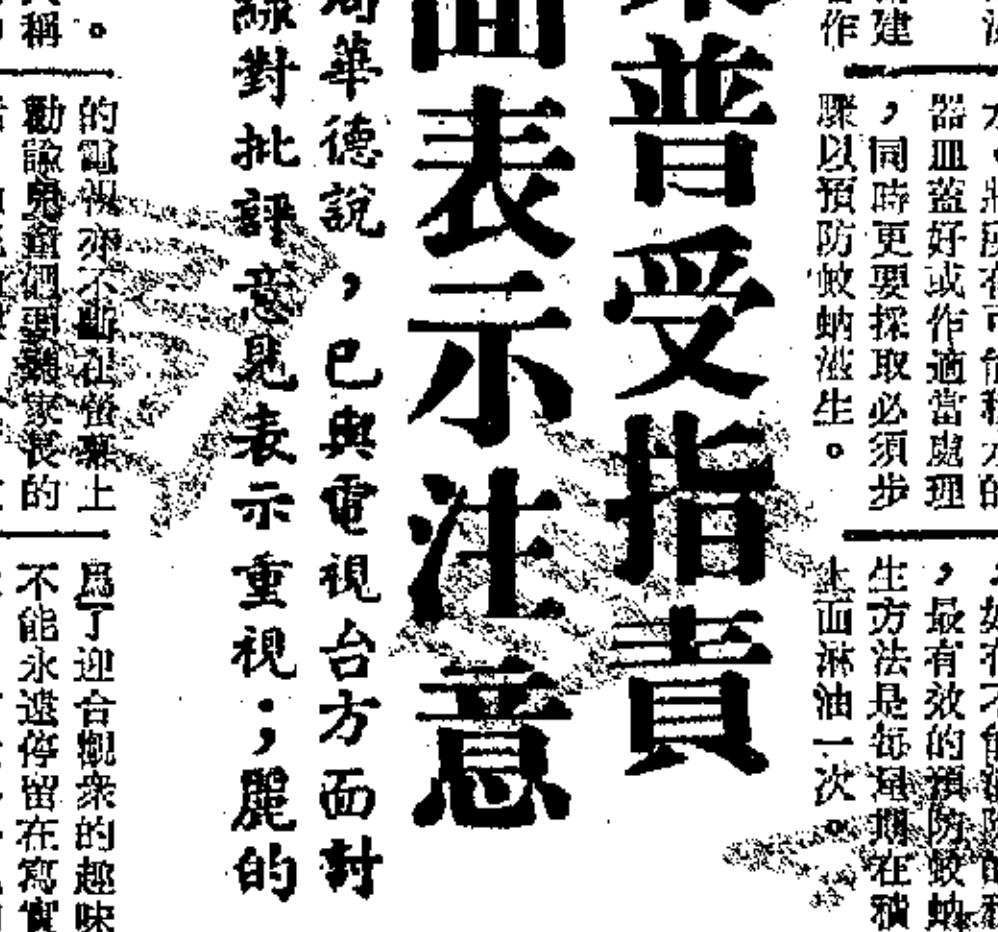 作
建
大
器皿蓋好或作適當處理
，同時更要採取必須步
驟以預防蚊蚋滋生。
，最有效的預防蚊蚋
生方法是每星期在積
上面淋油一次。
普受指責
面表示注意
華德說，已與電視台方面對
綠對批評意見表示重視；麗的
稱。
的電視亦不斷在螢幕上
勸諭兒童們要聽家長的
爲了迎合觀衆的趣味
不能永遠停留在寫實